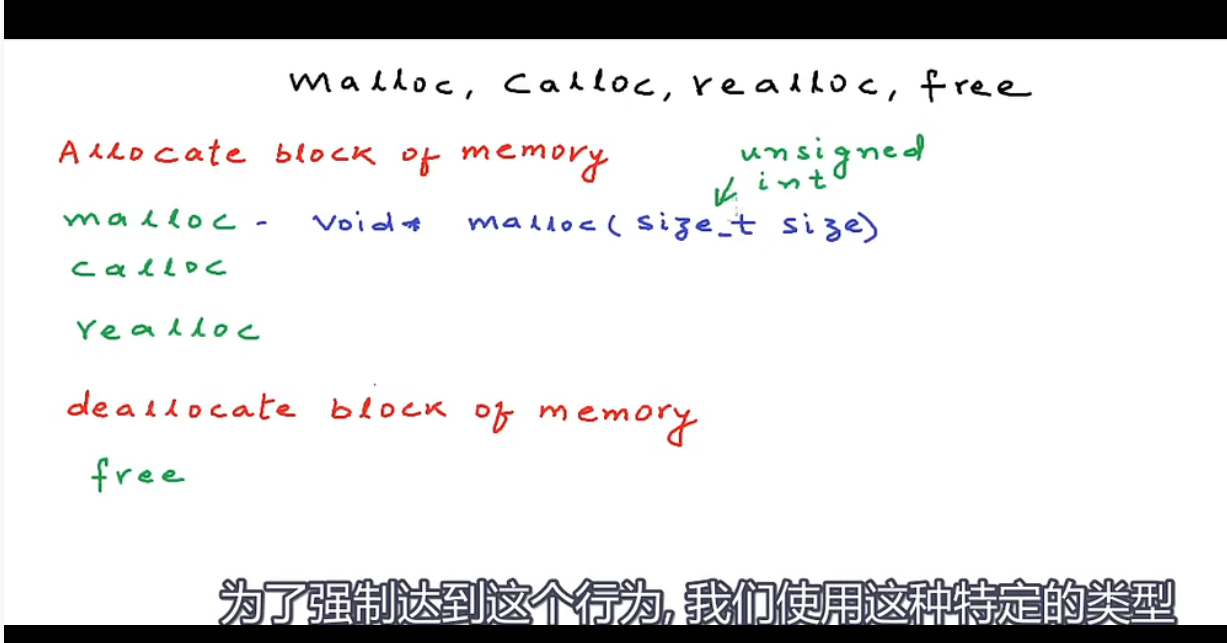 malloc, calloc, realloc, free
Allocate block of memory
unsigned
int
malloc - void* malloc(size_t size)
calloc
realloc
deallocate block of memory
free
为了强制达到这个行为, 我们使用这种特定的类型